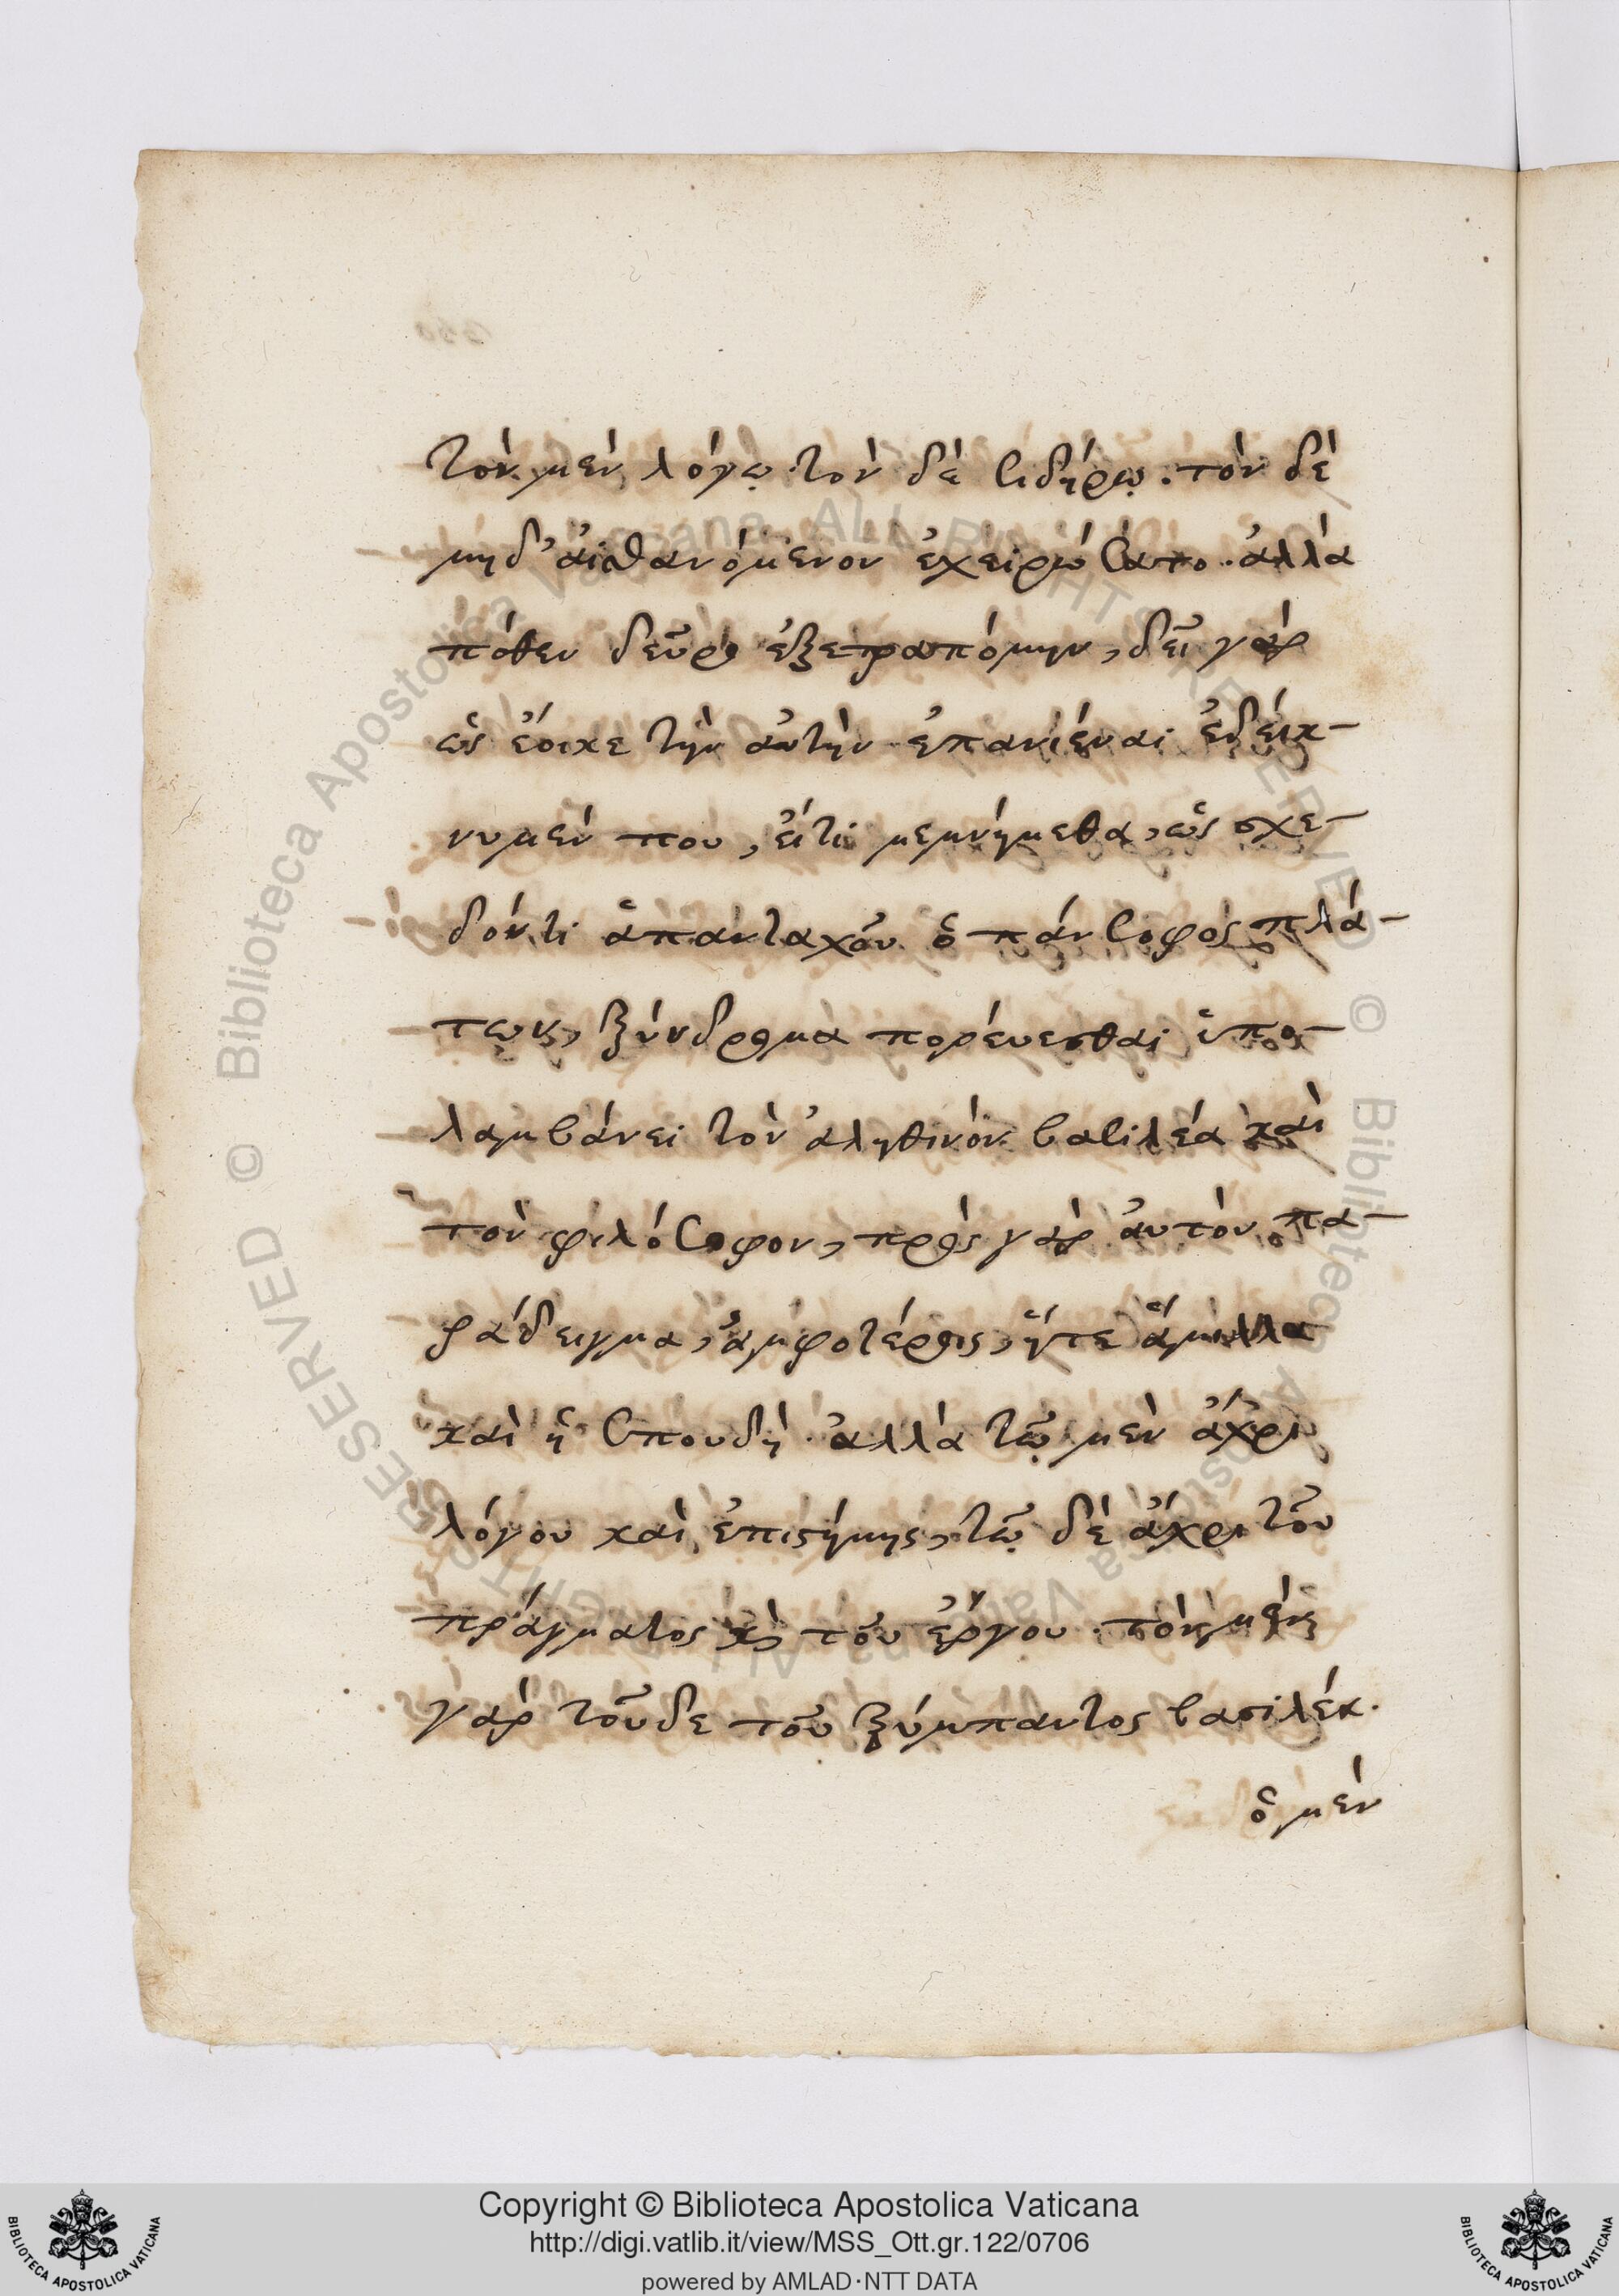 τὸν μὲν λόγῳ· τὸν δὲ σιδήρῳ. τὸν δὲ
μηδ' αἰσθανόμενον ἐχειρώσατο· ἀλλὰ
πόθεν δεῦρο ἐξετραπόμην, δεῖ γὰρ
ὡς ἔοικε τὴν αὐτὴν ἐπανιέναι ἐδείκ-
νυμέν που, εἴτι μεμνήμεθα, ὡς σχε-
δόν τι ἁπανταχοῦ ὁ πάνσοφος πλά-
των, ξύνδρομα πορεύεσθαι ὑπο-
λαμβάνει τὸν ἀληθινὸν βασιλέα καὶ
τὸν φιλόσοφον, πρὸς γὰρ αὐτὸν πα-
ράδειγμα, ἀμφοτέροις, ἥτε ἅμιλλα
καὶ ἡ σπουδὴ· ἀλλὰ τῷ μὲν ἄχρι
λόγου καὶ ἐπιστήμης, τῷ δὲ ἄχρι τοῦ
πράγματος καὶ τοῦ ἔργου. τὸν μὲν
γὰρ τοῦδε τοῦ ξύμπαντος βασιλέα.
ὁ μὲν
Copyright © Biblioteca Apostolica Vaticana
http://digi.vatlib.it/view/MSS_Ott.gr.122/0706
powered by AMLAD·NTT DATA
BIBLIOTECA APOSTOLICA VATICANA
BIBLIOTECA APOSTOLICA VATICANA
© Biblioteca Apostolica Vaticana ALL RIGHTS RESERVED © Biblioteca Apostolica Vaticana ALL RIGHTS RESERVED